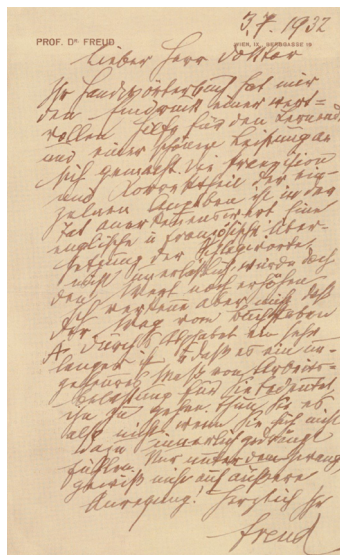 3.7.1932
PROF. DR FREUD
WIEN, IX., BERGGASSE 19
Lieber Herr Doktor
Ihr Handwörterbuch hat mir
den Eindruck einer wert=
vollen Hilfe für den Lernenden
und einer schönen Leistung an
sich gemacht. Die Präzision
und Korrektheit der ein-
zelnen Angaben ist in der
Tat anerkennenswert. Eine
englische u französische Über-
setzung der Schlagworte,
nicht unerlässlich, würde doch
den Wert noch erhöhen.
Ich verkenne aber nicht, daß
der Weg vom Buchstaben
A durchs Alphabet ein sehr
langer ist, u daß es ein un-
geheures Maß von Arbeits-
belastung für Sie bedeutet,
ihn zu gehen. Thun Sie es
also nicht, wenn Sie sich nicht
dazu innerlich gedrängt
fühlen. Nur unter dem Zwang,
gewiß nicht auf äußere
Anregung! Herzlich Ihr
Freud